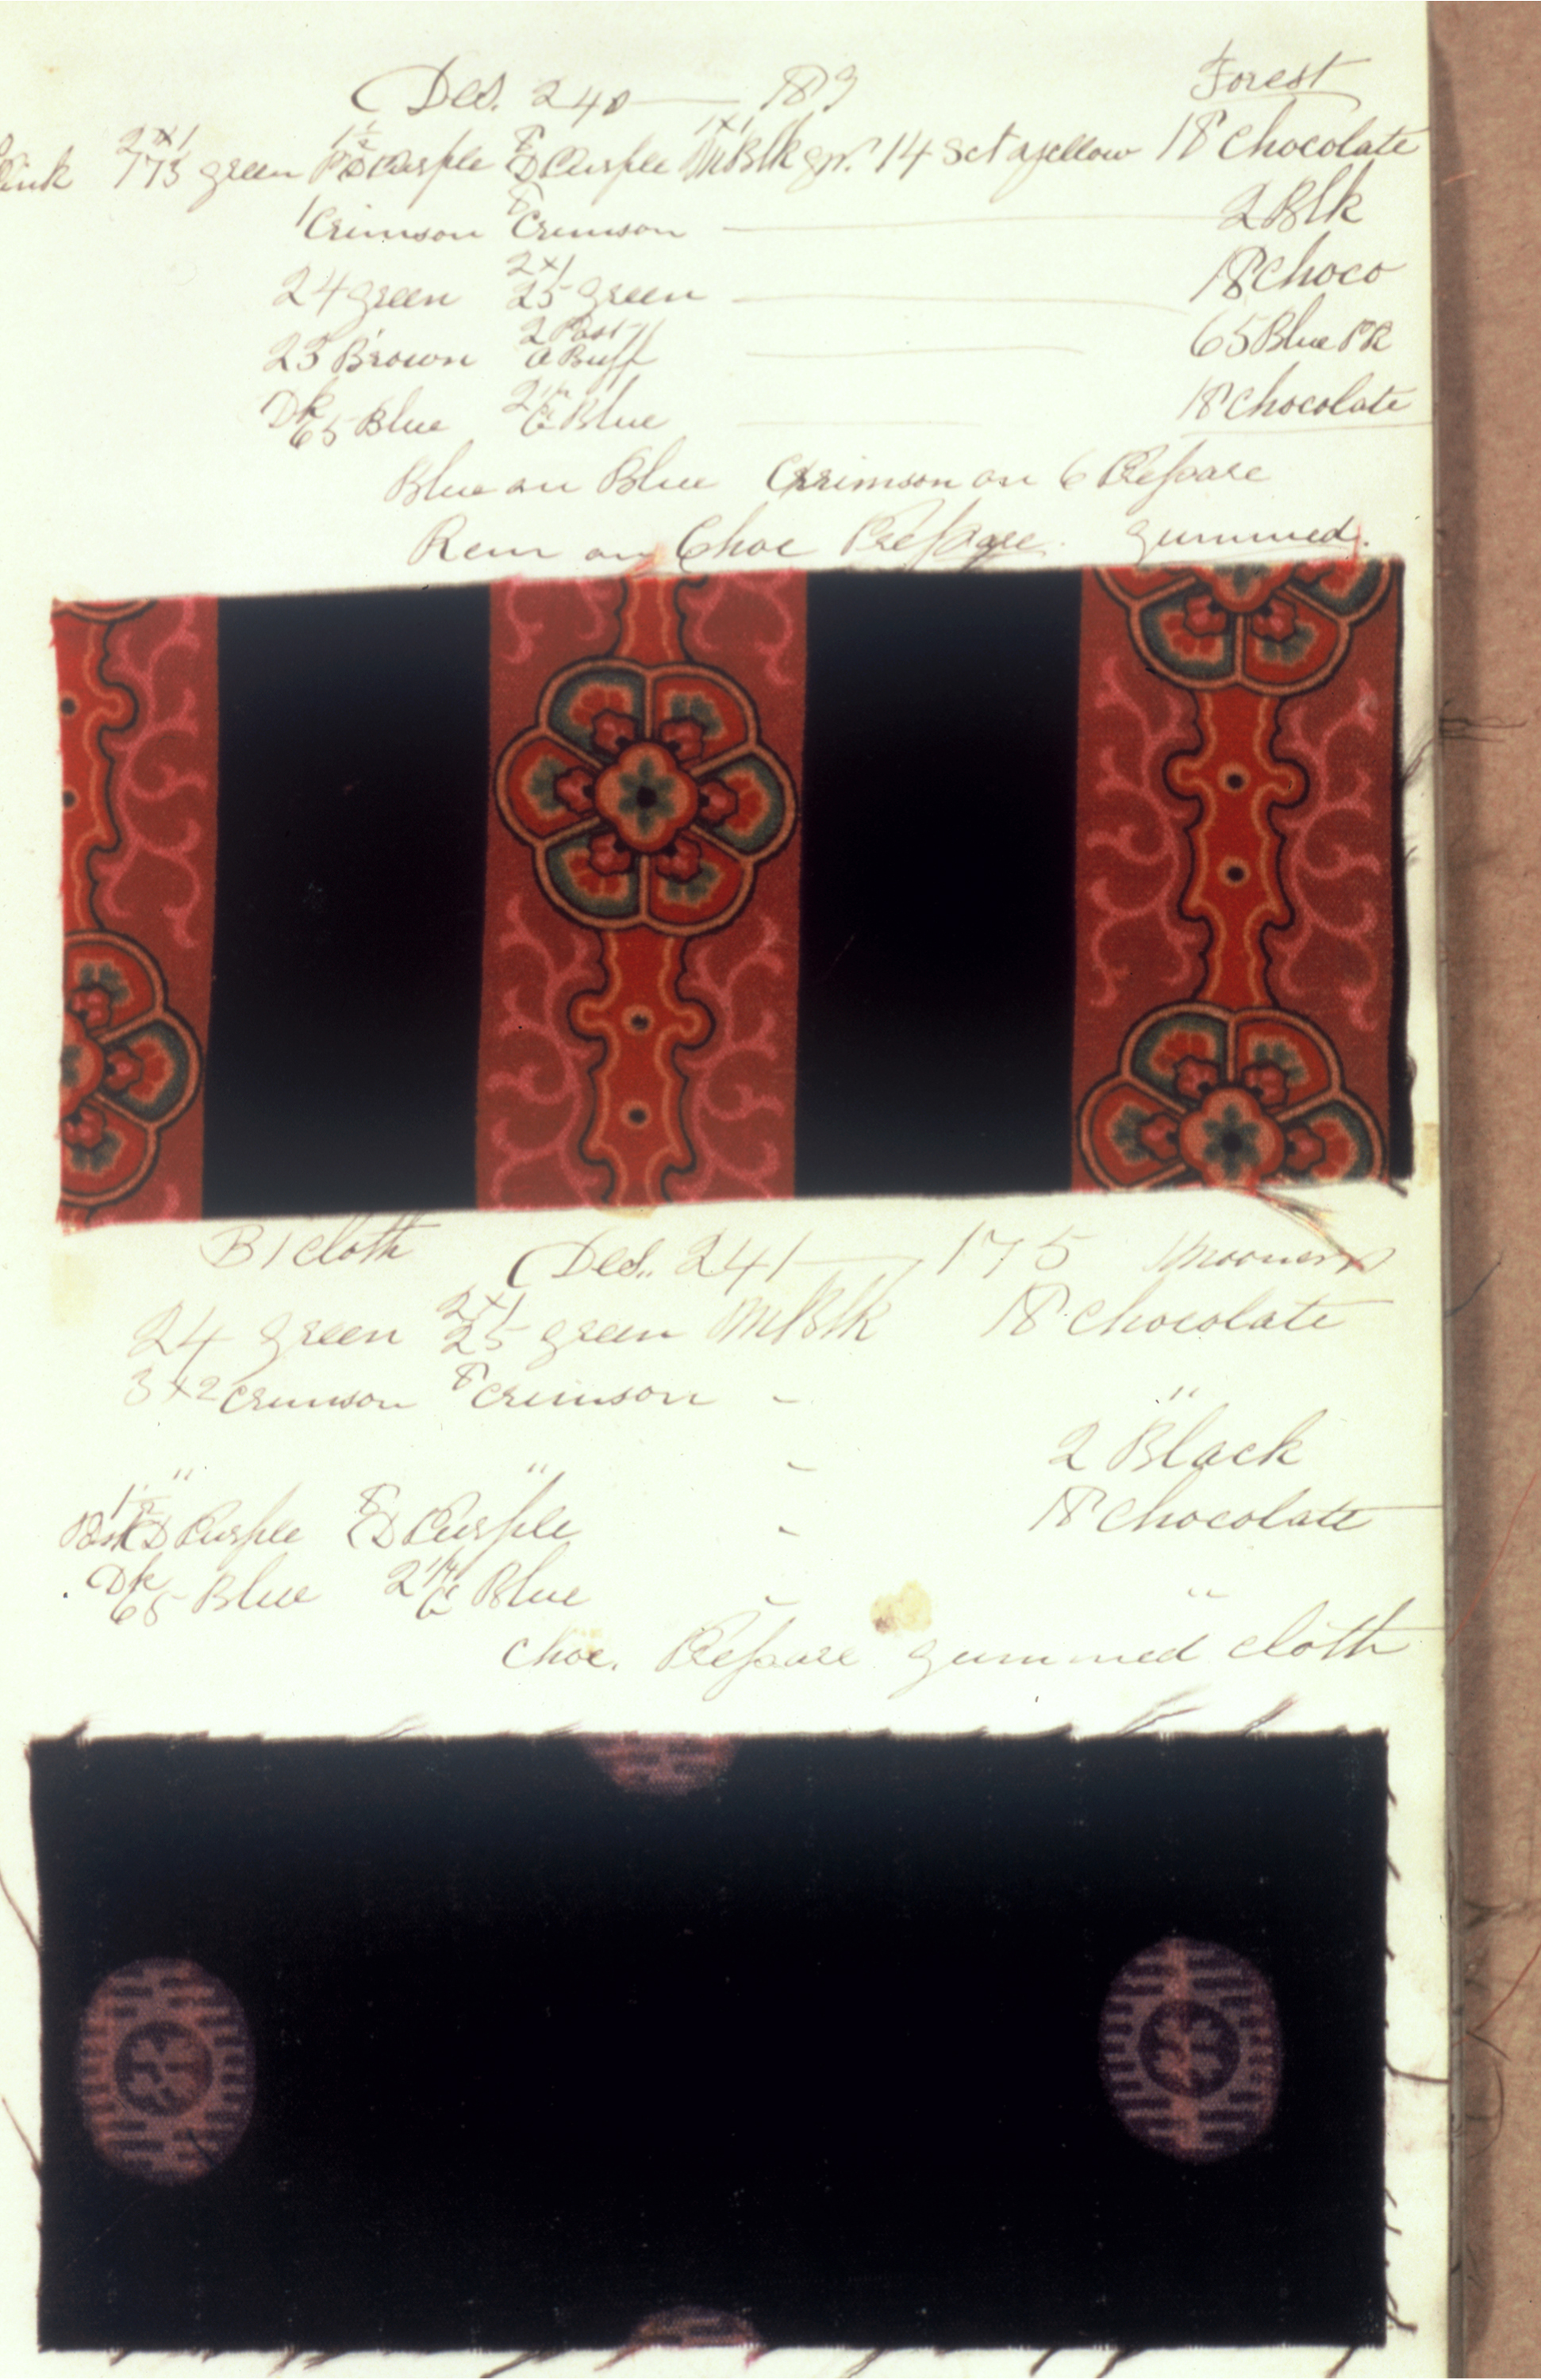 Des. 240 — 189 Forest
Pink 2x1 173 green 1½ PD Purple 8 D Purple 1x1 MBlk gr. 14 Set a yellow 18 Chocolate
1 Crimson 8 Crimson — 2 Blk
24 green 2x1 25 green — 18 Choco
23 Brown 2 Past 7/1 a Buff — 65 Blue PR
Dk 65 Blue 2 G Blue — 18 Chocolate
Blue on Blue Crimson on 6 Prepare
Rem on Choc Prepare. gummed.
B1 cloth Des. 241 — 175
24 green 2x1 25 green MBlk 18 Chocolate
3x2 crimson 8 crimson - "
" " - 2 Black
1½ D Purple 8 D Purple - 18 Chocolate
Dk 65 Blue 2 G Blue - "
Choc. Prepare gummed cloth